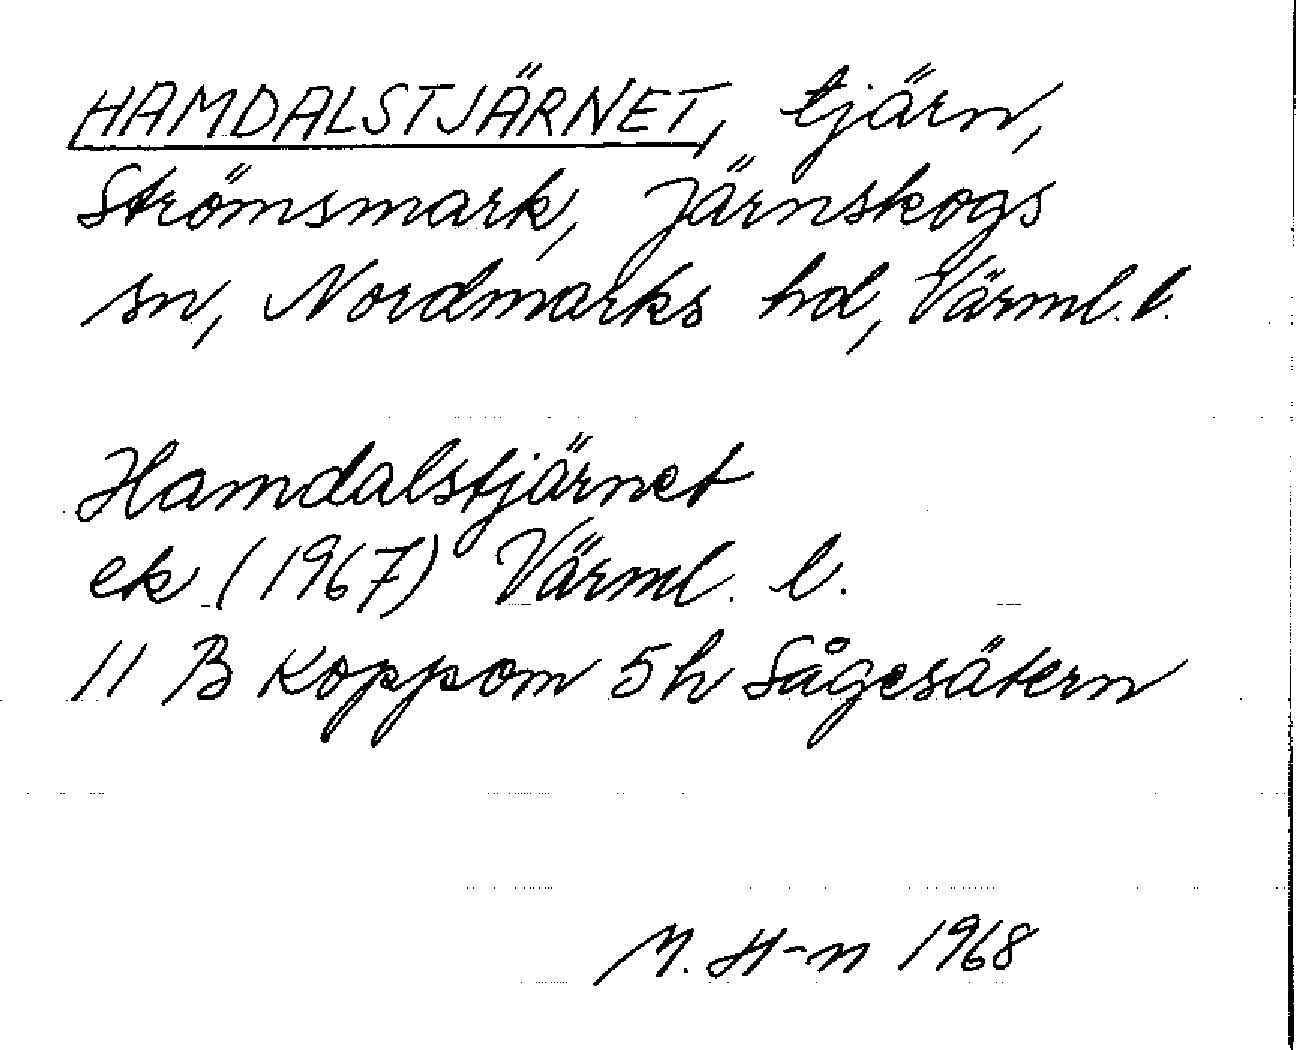 HAMDALSTJÄRNET, tjärn,
Strömsmark, Järnskogs
sn, Nordmarks hd, Värml. l.
Hamdalstjärnet
ek (1967) Värml. l.
11 B Koppom 5h Sågesätern
M. H-n 1968